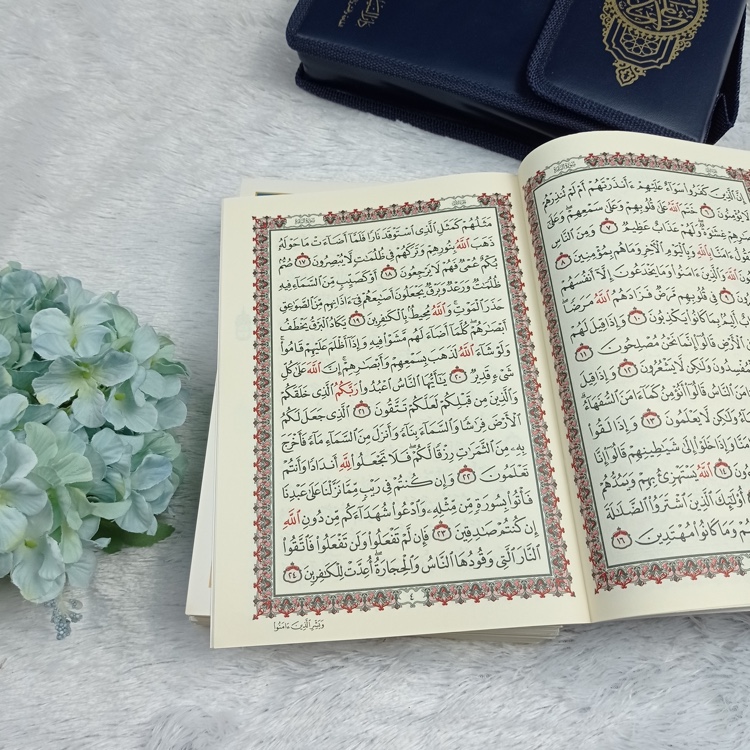 إِنَّ ٱلَّذِينَ كَفَرُوا۟ سَوَآءٌ عَلَيْهِمْ ءَأَنذَرْتَهُمْ أَمْ لَمْ تُنذِرْهُمْ
يُؤْمِنُونَ ٦ خَتَمَ ٱللَّهُ عَلَىٰ قُلُوبِهِمْ وَعَلَىٰ سَمْعِهِمْ وَعَلَىٰٓ
غِشَٰوَةٌ وَلَهُمْ عَذَابٌ عَظِيمٌ ٧ وَمِنَ ٱلنَّاسِ
ءَامَنَّا بِٱللَّهِ وَبِٱلْيَوْمِ ٱلْءَاخِرِ وَمَا هُم بِمُؤْمِنِينَ ٨
ٱللَّهَ وَٱلَّذِينَ ءَامَنُوا۟ وَمَا يَخْدَعُونَ إِلَّآ أَنفُسَهُمْ
٩ فِى قُلُوبِهِم مَّرَضٌ فَزَادَهُمُ ٱللَّهُ مَرَضًا
أَلِيمٌۢ بِمَا كَانُوا۟ يَكْذِبُونَ ١٠ وَإِذَا قِيلَ لَهُمْ
ٱلْأَرْضِ قَالُوٓا۟ إِنَّمَا نَحْنُ مُصْلِحُونَ ١١
ٱلْمُفْسِدُونَ وَلَٰكِن لَّا يَشْعُرُونَ ١٢ وَإِذَا قِيلَ
ٱلنَّاسُ قَالُوٓا۟ أَنُؤْمِنُ كَمَآ ءَامَنَ ٱلسُّفَهَآءُ
وَلَٰكِن لَّا يَعْلَمُونَ ١٣ وَإِذَا لَقُوا۟
ءَامَنَّا وَإِذَا خَلَوْا۟ إِلَىٰ شَيَٰطِينِهِمْ قَالُوٓا۟ إِنَّا
١٤ ٱللَّهُ يَسْتَهْزِئُ بِهِمْ وَيَمُدُّهُمْ
١٥ أُو۟لَٰٓئِكَ ٱلَّذِينَ ٱشْتَرَوُا۟ ٱلضَّلَٰلَةَ
وَمَا كَانُوا۟ مُهْتَدِينَ ١٦
سُورَةُ البَقَرَةِ
مَثَلُهُمْ كَمَثَلِ ٱلَّذِى ٱسْتَوْقَدَ نَارًا فَلَمَّآ أَضَآءَتْ مَا حَوْلَهُۥ
ذَهَبَ ٱللَّهُ بِنُورِهِمْ وَتَرَكَهُمْ فِى ظُلُمَٰتٍ لَّا يُبْصِرُونَ ١٧ صُمٌّۢ
بُكْمٌ عُمْىٌ فَهُمْ لَا يَرْجِعُونَ ١٨ أَوْ كَصَيِّبٍ مِّنَ ٱلسَّمَآءِ فِيهِ
ظُلُمَٰتٌ وَرَعْدٌ وَبَرْقٌ يَجْعَلُونَ أَصَٰبِعَهُمْ فِىٓ ءَاذَانِهِم مِّنَ ٱلصَّوَٰعِقِ
حَذَرَ ٱلْمَوْتِ ۚ وَٱللَّهُ مُحِيطٌۢ بِٱلْكَٰفِرِينَ ١٩ يَكَادُ ٱلْبَرْقُ يَخْطَفُ
أَبْصَٰرَهُمْ ۖ كُلَّمَآ أَضَآءَ لَهُم مَّشَوْا۟ فِيهِ وَإِذَآ أَظْلَمَ عَلَيْهِمْ قَامُوا۟ ۚ
وَلَوْ شَآءَ ٱللَّهُ لَذَهَبَ بِسَمْعِهِمْ وَأَبْصَٰرِهِمْ ۚ إِنَّ ٱللَّهَ عَلَىٰ كُلِّ
شَىْءٍ قَدِيرٌ ٢٠ يَٰٓأَيُّهَا ٱلنَّاسُ ٱعْبُدُوا۟ رَبَّكُمُ ٱلَّذِى خَلَقَكُمْ
وَٱلَّذِينَ مِن قَبْلِكُمْ لَعَلَّكُمْ تَتَّقُونَ ٢١ ٱلَّذِى جَعَلَ لَكُمُ
ٱلْأَرْضَ فِرَٰشًا وَٱلسَّمَآءَ بِنَآءً وَأَنزَلَ مِنَ ٱلسَّمَآءِ مَآءً فَأَخْرَجَ
بِهِۦ مِنَ ٱلثَّمَرَٰتِ رِزْقًا لَّكُمْ ۖ فَلَا تَجْعَلُوا۟ لِلَّهِ أَندَادًا وَأَنتُمْ
تَعْلَمُونَ ٢٢ وَإِن كُنتُمْ فِى رَيْبٍ مِّمَّا نَزَّلْنَا عَلَىٰ عَبْدِنَا
فَأْتُوا۟ بِسُورَةٍ مِّن مِّثْلِهِۦ وَٱدْعُوا۟ شُهَدَآءَكُم مِّن دُونِ ٱللَّهِ
إِن كُنتُمْ صَٰدِقِينَ ٢٣ فَإِن لَّمْ تَفْعَلُوا۟ وَلَن تَفْعَلُوا۟ فَٱتَّقُوا۟
ٱلنَّارَ ٱلَّتِى وَقُودُهَا ٱلنَّاسُ وَٱلْحِجَارَةُ ۖ أُعِدَّتْ لِلْكَٰفِرِينَ ٢٤
٤
وَبَشِّرِ ٱلَّذِينَ ءَامَنُوا۟